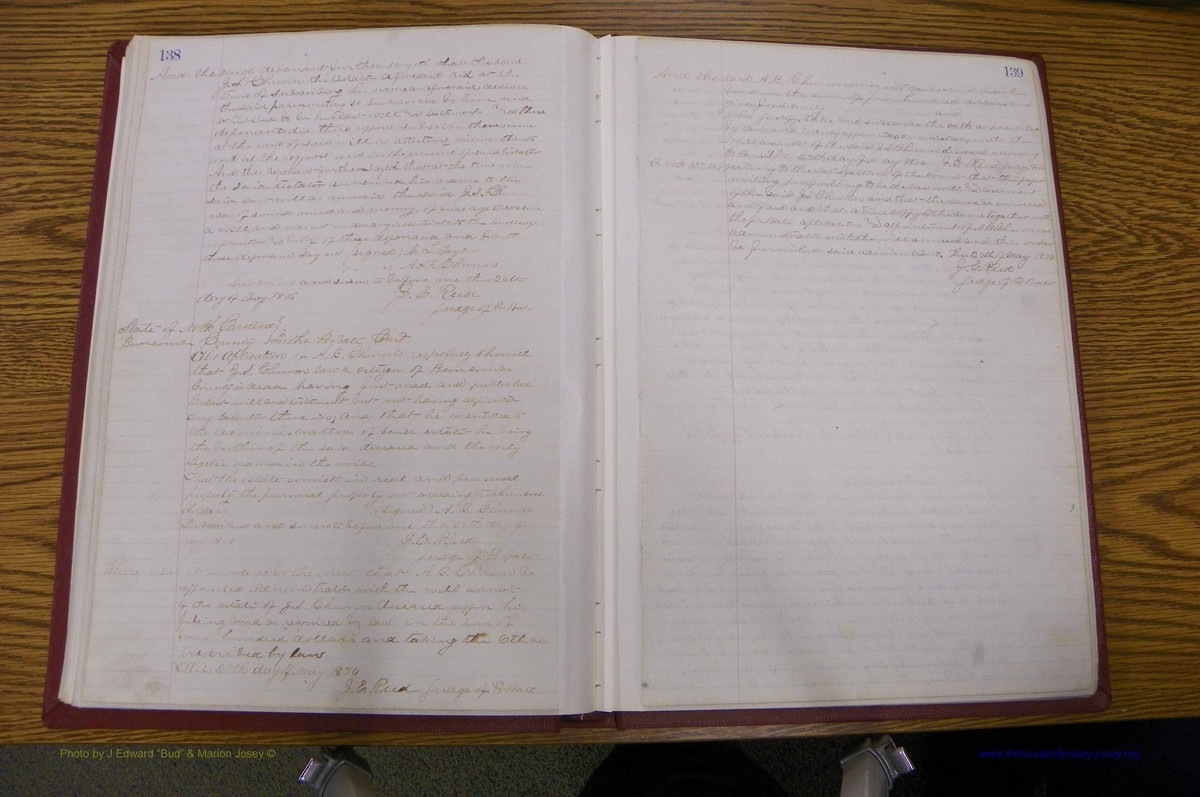 138
And the said deponant further sayeth that the said
J.S. Chunn the testator aforesaid did at the
time of subscribing his name aforesaid declare
the said paper writing so subscribed by him and
to be his last will and testament and these
deponant did thereupon subscribe there name
at the end of said will as attesting witness thereto
and at the request and in the presence of said testator
And the deponant further sayeth that at the time when
the said testator subscribed his name to the
said last will as aforesaid the said J.S. Chunn
was of sound mind and memory of full age to execute
a will and was not under any restraint to the knowledge
information or belief of these deponand and further
these deponand say not signed
A.B. Chunn
Subscribed and sworn to before me this 26th
day of May 1876 J.E. Reed
Judge of Probate
State of North Carolina
Buncombe County In the Probate Court
The Application of A.B. Chunn respectfully sheweth
that J.S. Chunn late a citizen of Buncombe
County is dead having first made and published
his last will and testament but not having appointed
any Executor therein, and that he is entitled to
the administration of said estate he being
the brother of the said deceased and the only
legatee named in the will
That the estate consists in real and personal
property the personal property not exceeding two hundred
dollars (signed) A.B. Chunn
Subscribed and sworn to before me this 27th day of
May 1876 J.E. Reed
Judge of Probate
Whereupon it is ordered by the court that A.B. Chunn be
appointed administrator with the will annexed
of the estate of J.S. Chunn deceased upon his
giving bond as required by law in the sum of
four hundred dollars and taking the Oth as
prescribed by law
This 27th day of May 1876
J.E. Reed Judge of Probate
139
And the said A.B. Chunn
bond in the sum of four hundred dollars and
giving for security
and subscribed the oath as prescribed
by law
will annexed of the said J.S. Chunn deceased
27th day of May 1876 J.E. Reed
And it appearing to the satisfaction of the court that the paper
writing purporting to be the last will and testament
of the said J.S. Chunn and that the same be recorded
and filed and that a true copy of the same together with
the probate application & appointment of A.B. Chunn
administrator with the will annexed and this order
be furnished said administrator. This 27th May 1876
J.E. Reed
Judge of Probate
Photo by J Edward "Bud" & Marion Josey ©
www.thehouseofjossey-josey.org